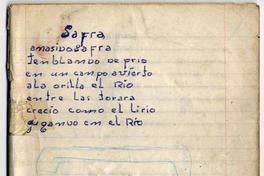 Safra
anasido safra
tenblando de frio
en un canpo avierto
ala orilla el Rio
entre las
crecio como el lirio
en el Rio